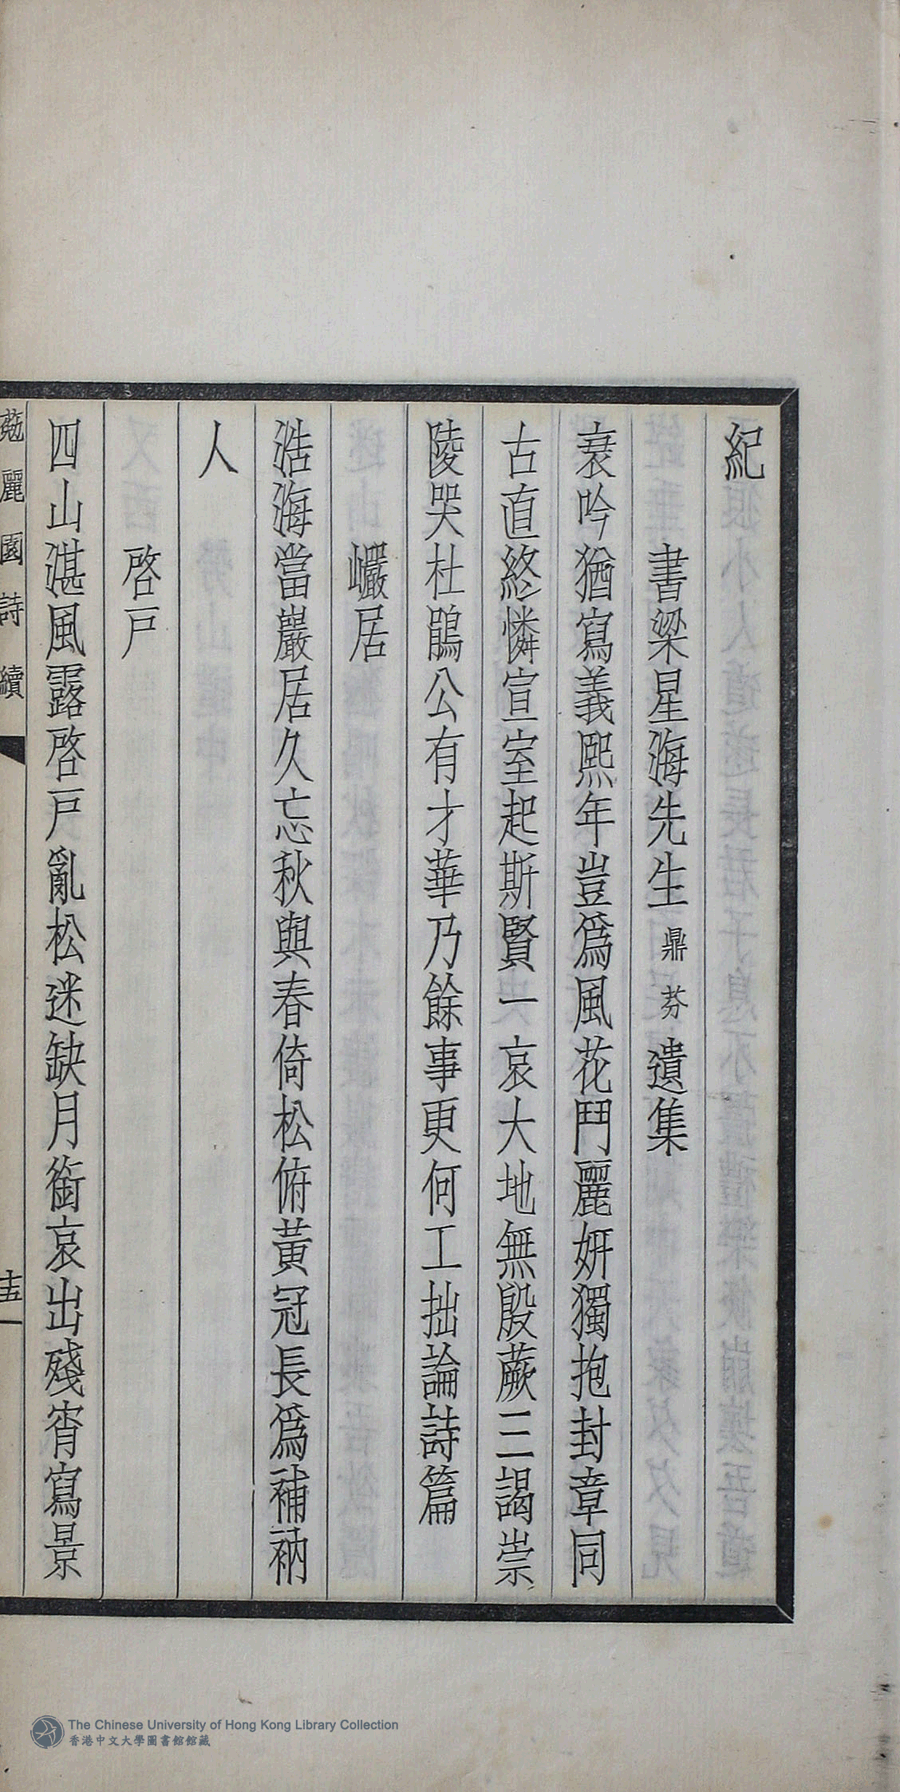 紀
書梁星海先生鼎芬遺集
哀吟猶寫義熙年豈為風花鬥麗妍獨抱封章同
古直終憐宣室起斯賢一哀大地無殷蕨三謁崇
陵哭杜鵑公有才華乃餘事更何工拙論詩篇
巗居
浩海當巖居久忘秋與春倚松俯黃冠長為補衲
人
啓戶
四山湛風露啓戶亂松迷缺月銜哀出殘宵寫景
菢麗園詩續
十五
The Chinese University of Hong Kong Library Collection
香港中文大學圖書館館藏